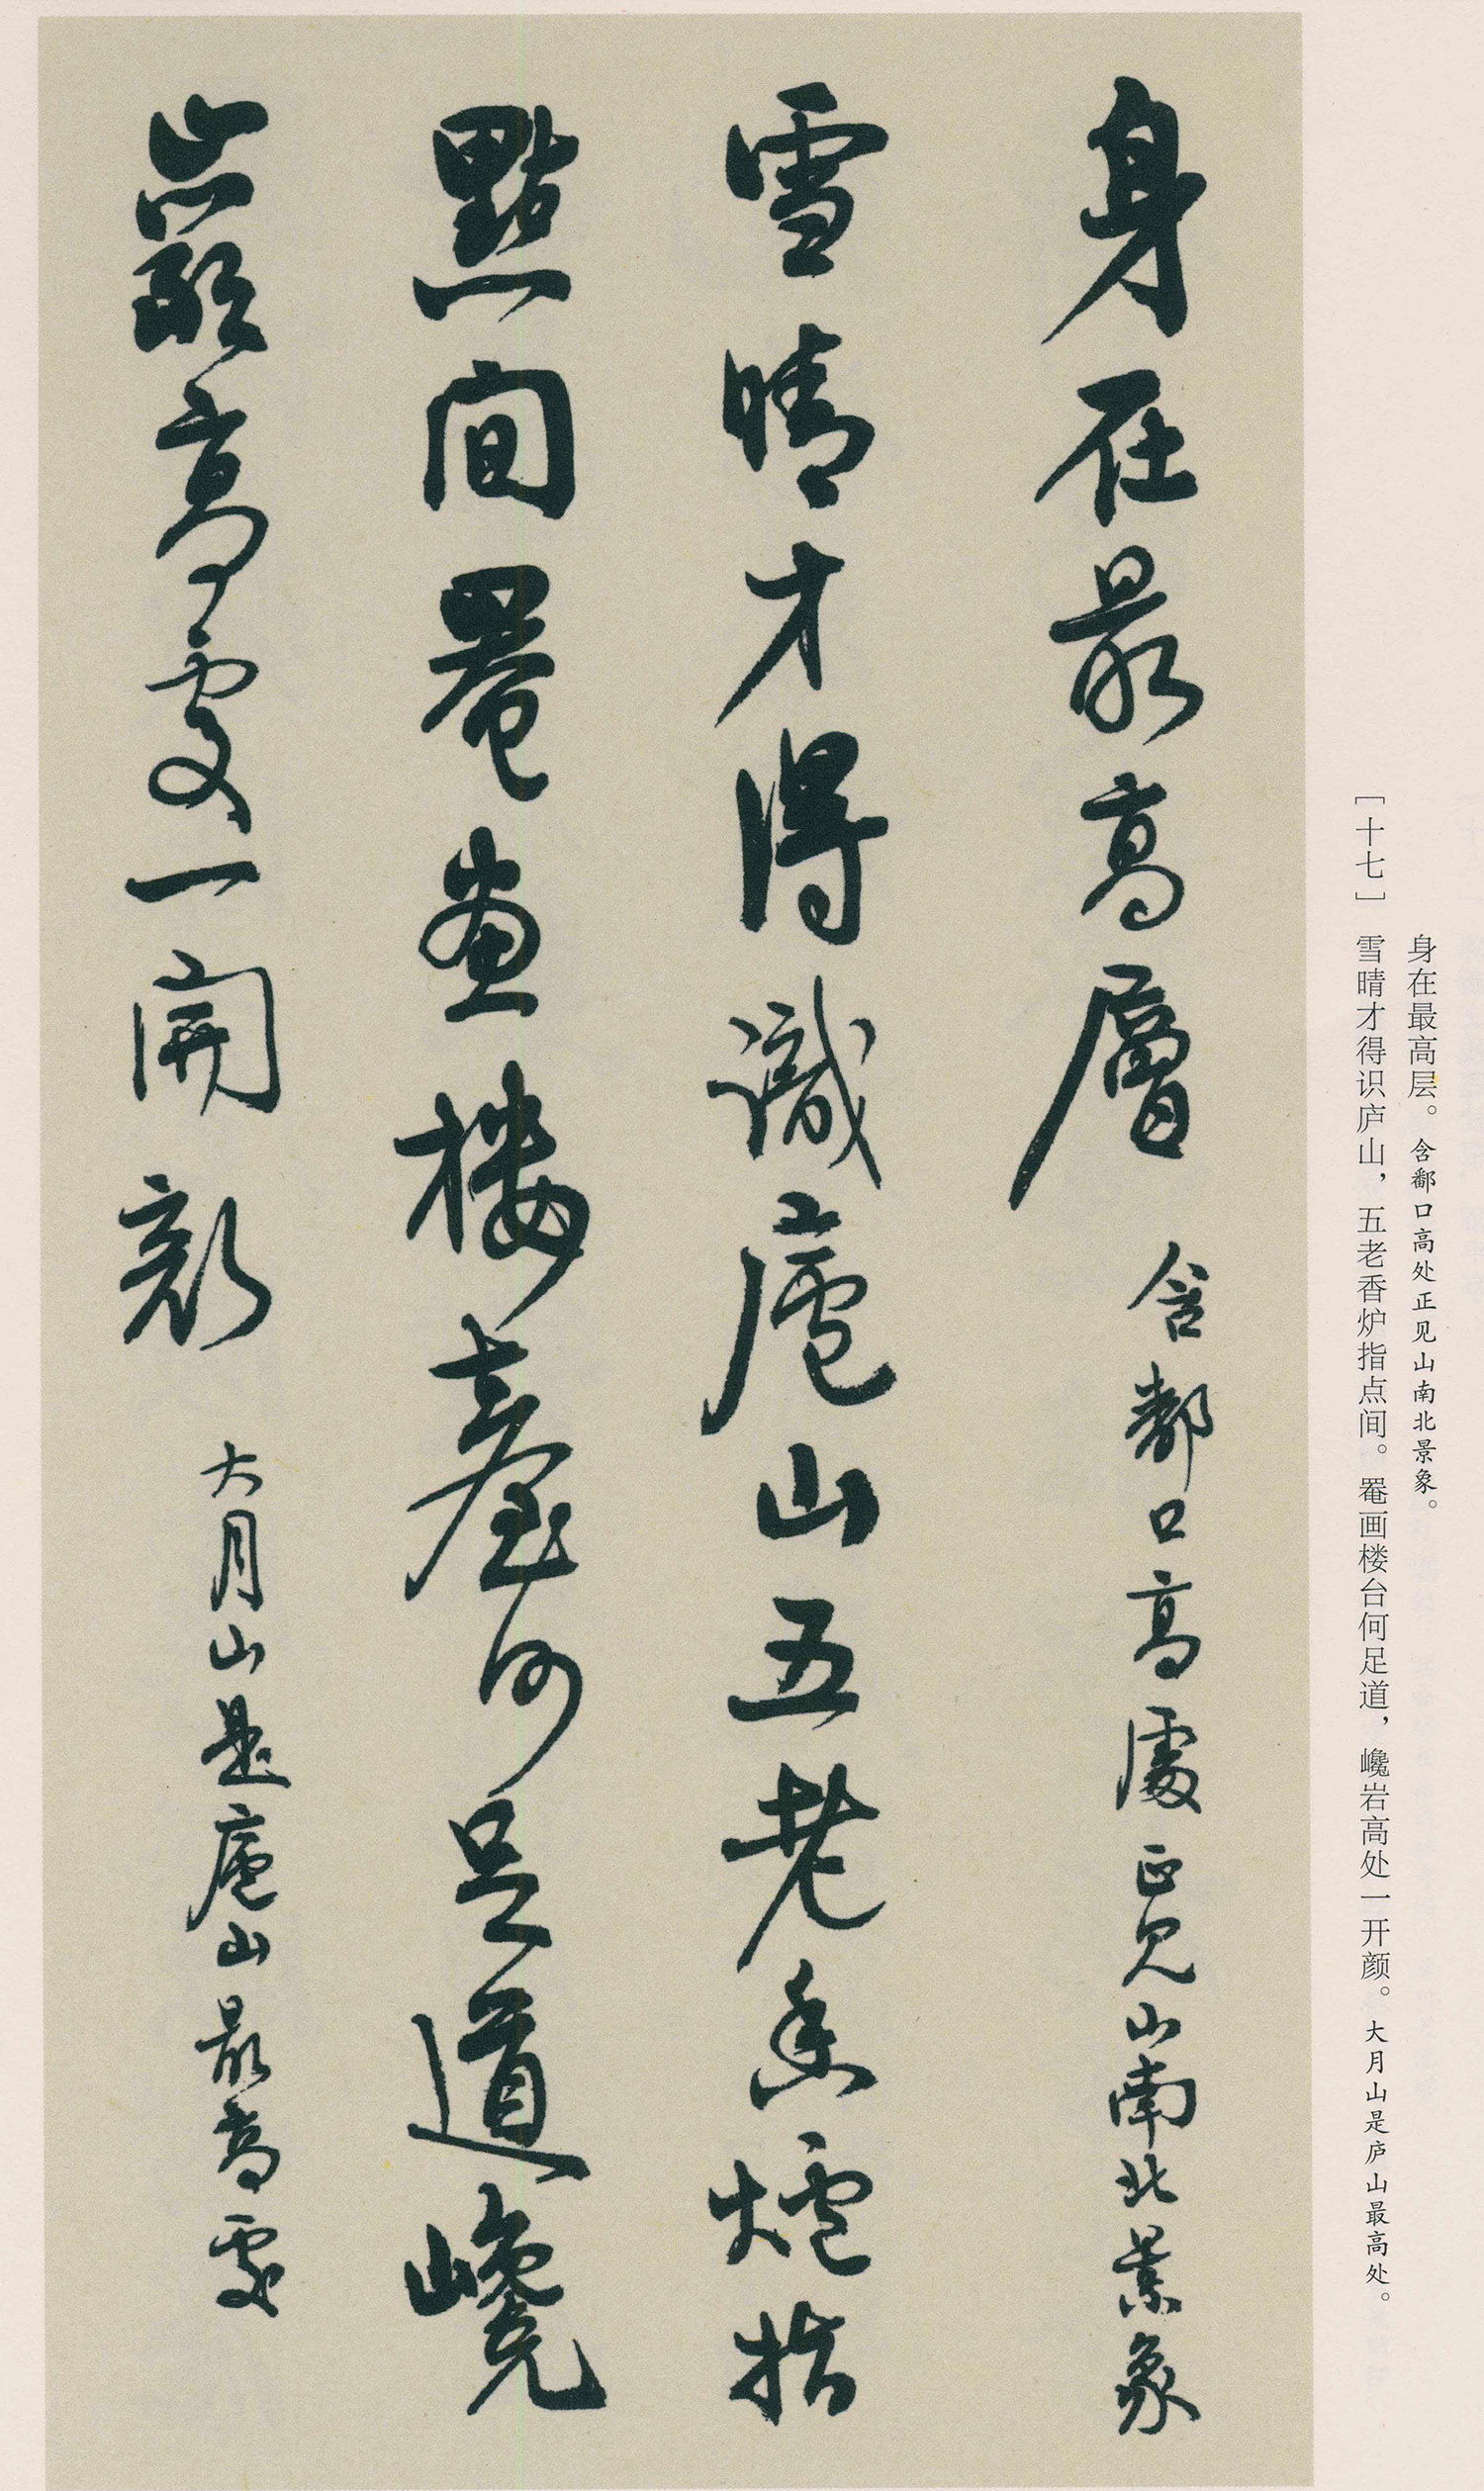 身在最高層 含鄱口高處正見山南北景象
雪晴才得識廬山五老香爐指
點間罨畫樓臺何足道巉
巖高處一開顏 大月山是廬山最高處
身在最高层。含鄱口高处正见山南北景象。
［十七］ 雪晴才得识庐山，五老香炉指点间。罨画楼台何足道，巉岩高处一开颜。大月山是庐山最高处。